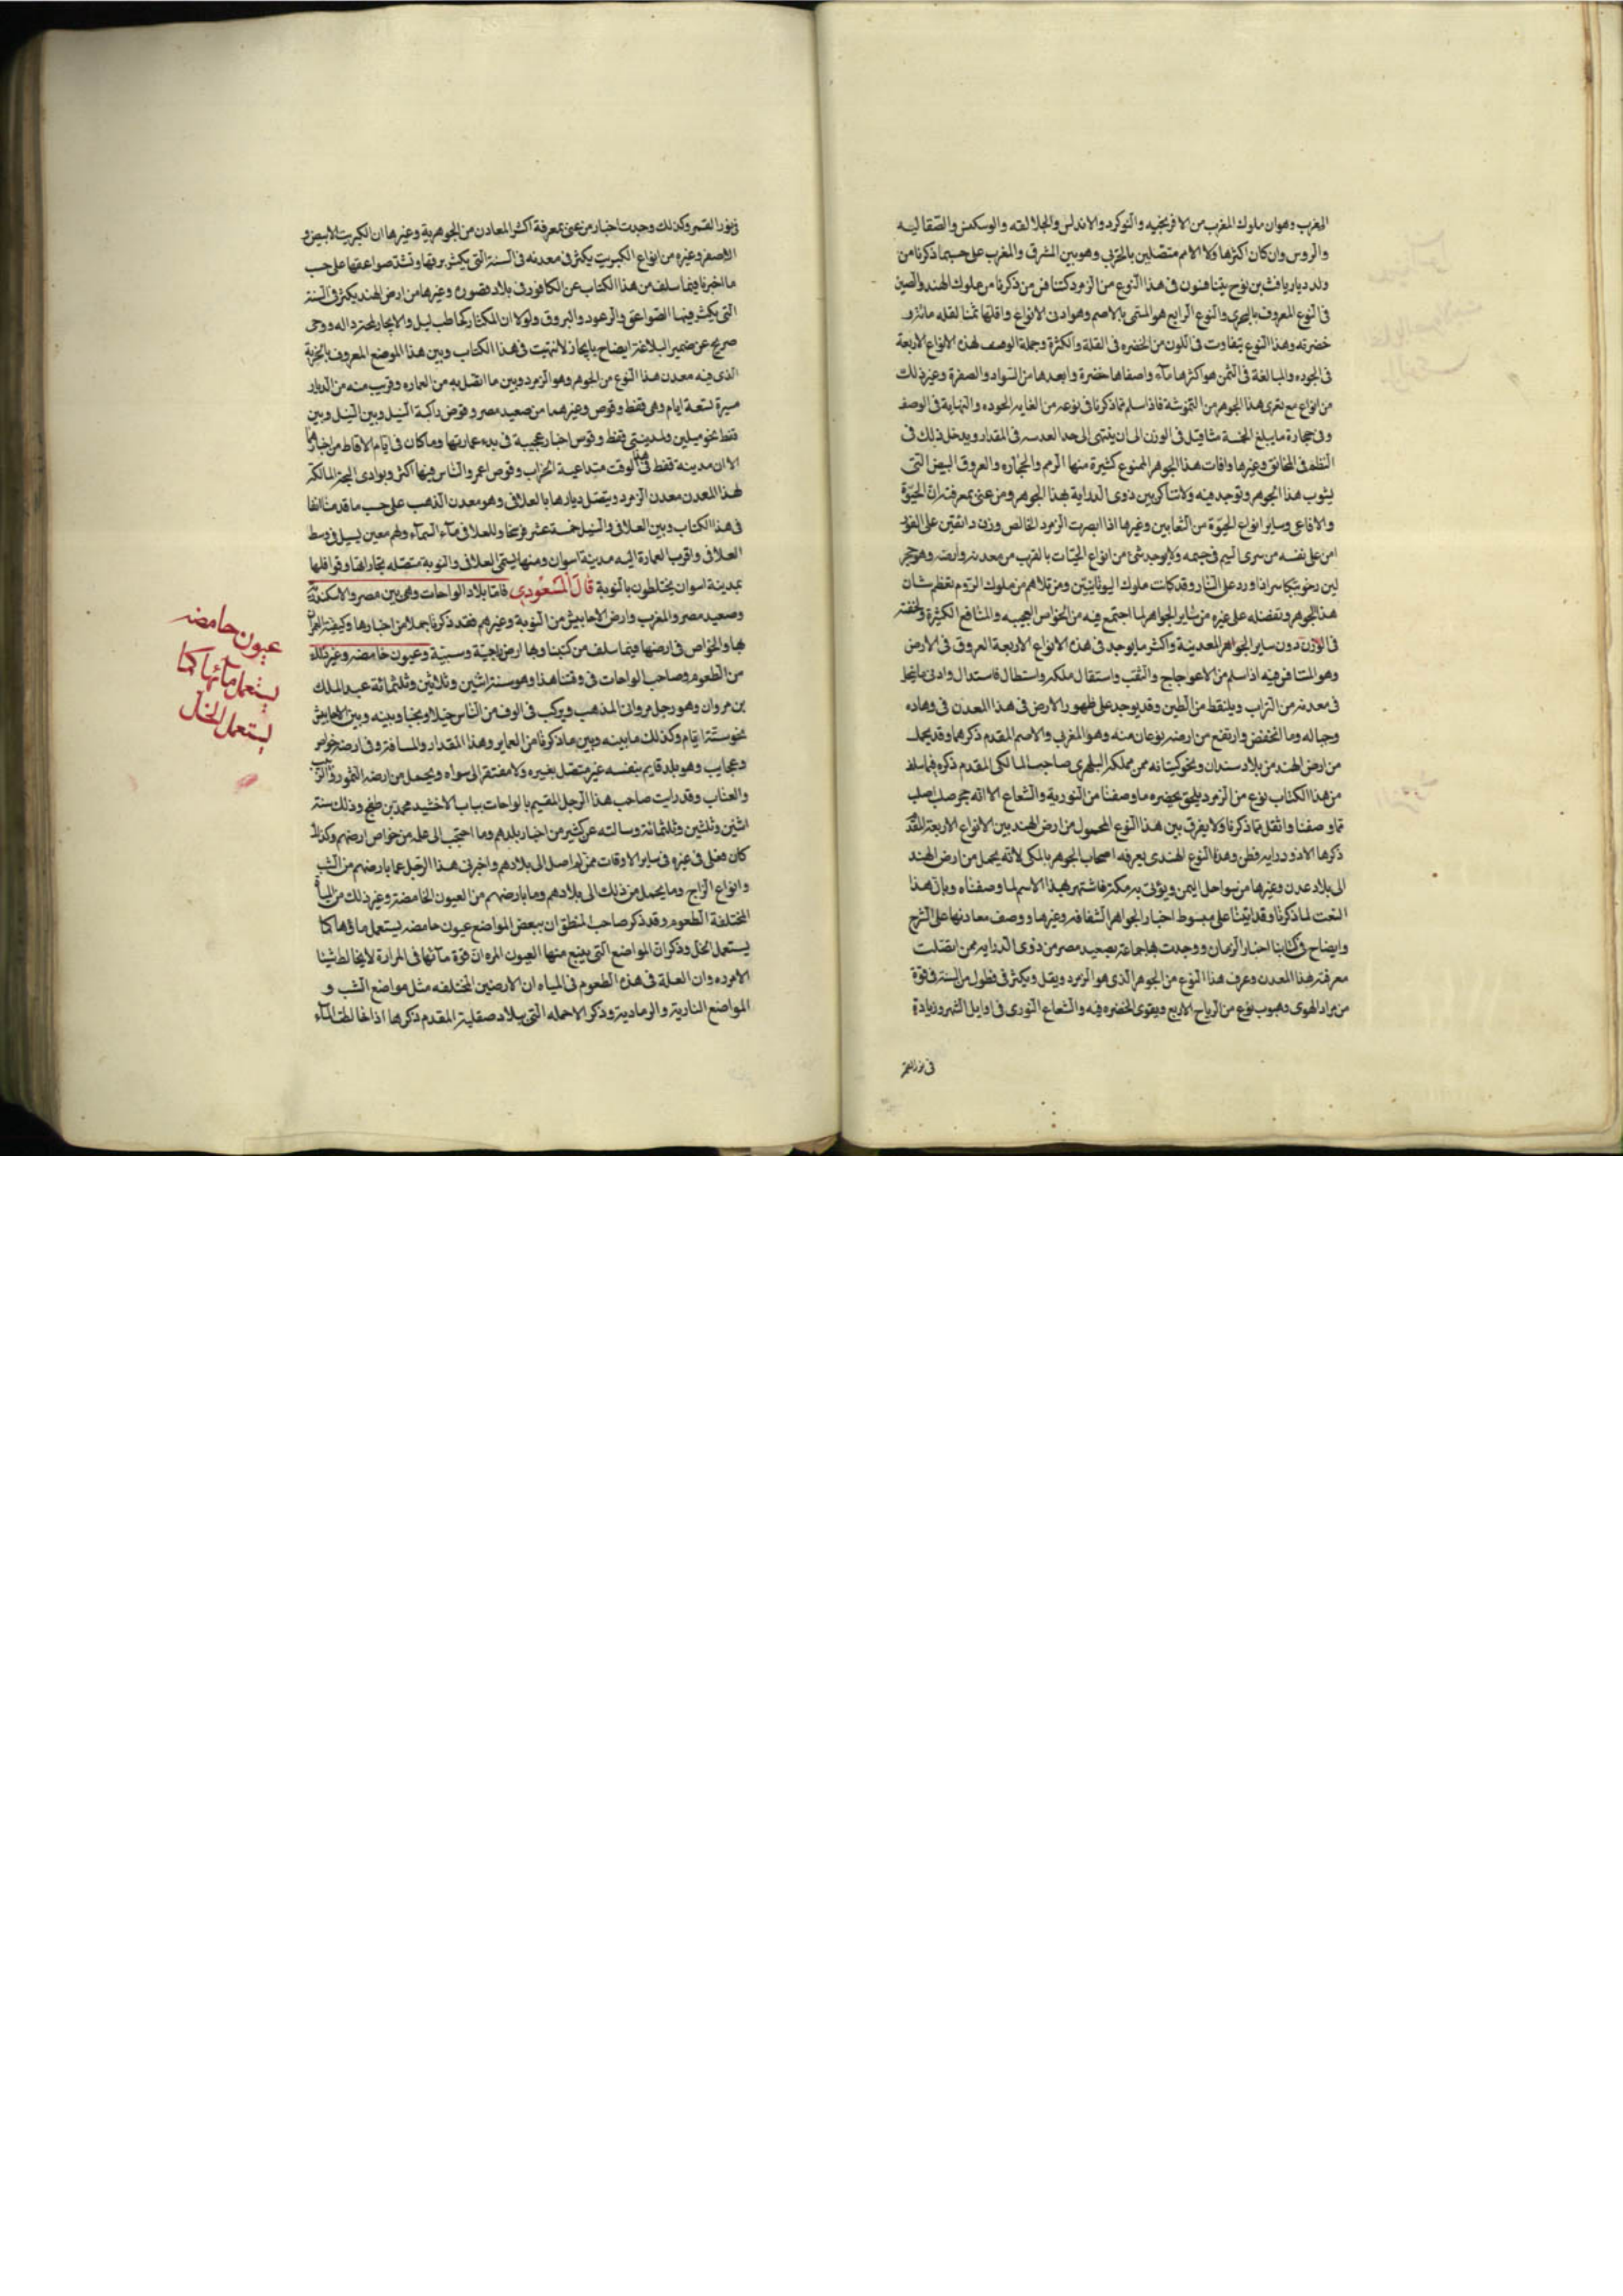 المغرب وهوان ملوك المغرب من الافرنجيه والنوكرد والاندلس والجلالقه والوسكنس والصقاليه
والروس وان كان اكثرها ولا الامم متصلين بالحربي وهو بين المشرق والمغرب على حسبما ذكرنا من
ولد ديار يافث بن نوح يتنافسون فى هذا النوع من الزمرد كتنافس من ذكرنا من ملوك الهند والصين
فى النوع المعروف بالبحرى والنوع الرابع هو المسمى بالاصم وهو ادنى الانواع واقلها ثمنا لقله مائه و
خضرته وهذا النوع يتفاوت فى اللون من الخضره فى القلة والكثرة وجملة الوصف لهذه الانواع الاربعة
فى الجوده والمبالغة فى الثمن هو اكثرها مآء واصفاها خضرة وابعدها من السواد والصفرة وغير ذلك
من انواع مع تعرى هذا الجوهر من النموشة فاذا سلم مما ذكرنا فى نوعه من الغايه الجوده والنهاية فى الوصف
وفى حجارة ما يبلغ الخمسة مثاقيل فى الوزن الى ان ينتهى الى حد العدسه فى المقدار ويدخل ذلك فى
النظم فى المخانق وغيرها وافات هذا الجوهر المنوع كثيرة منها الرمم والحجاره والعروق البيض التى
يشوب هذا الجوهر وتوجد فيه ولا تناكر بين ذوى الدراية بهذا الجوهر ومن عنى بمعرفته ان الحيّة
والافاعى وساير انواع الحيّة من الثعابين وغيرها اذا ابصرت الزمرد الخالص وزن دانقين على الفور
امن على نفسه من سرى السم فى جسمه ولا يوجد شئ من انواع الحيّات بالقرب من معدنه وارضه وهو حجر
لين رخو يتكاسر اذا ورد على النار وقد كانت ملوك اليونانيين ومن تلاهم من ملوك الروم تعظم شان
هذا الجوهر وتفضله على غيره من ساير الجواهر لما اجتمع فيه من الخواص العجيبه والمنافع الكثيرة ولخفته
فى الوزن دون ساير الجواهر المعدنيه واكثر ما يوجد فى هذه الانواع الاربعة العروق فى الارض
وهو المتنافس فيه اذا سلم من الاعوجاج والثقب واستقال ملكه واستطال فاستدال وادنى ما يتخذ
فى معدنه من التراب ويلتقط من الطين وقد يوجد على ظهور الارض فى هذا المعدن فى وهاده
وجباله وما انخفض وارتفع من ارضه نوعان منه وهو المغربى والاصم المقدم ذكرهما وقد يحمل
من ارض الهند من بلاد سندان ونحو كيتانه ممن مملكه البلهرى صاحب المالكى المقدم ذكره فيما سلف
من هذا الكتاب نوع من الزمرد يلحق بخضره ما وصفنا من النوريه والشعاع الا انه حجر صلب اصلب
مما وصفنا واثقل مما ذكرنا ولا يفرق بين هذا النوع المحمول من ارض الهند بين الانواع الاربعة المقدم
ذكرها الا ذو درايه فطن وهذا النوع الهندى يعرفه اصحاب الجوهر بالمكى لانه يحمل من ارض الهند
الى بلاد عدن وغيرها من سواحل اليمن ويؤتى به مكة فاشتهر بهذا الاسم لما وصفناه وبان هذا
النعت لما ذكرنا وقد اتينا على مبسوط اخبار الجواهر الشفافه وغيرها ووصف معادنها على الشرح
وايضاح فى كتابنا اخبار الزمان ووجدت بها جماعة بصعيد مصر من ذوى الدرايه ممن اتصلت
معرفته بهذا المعدن وعرف هذا النوع من الجوهر الذى هو الزمرد ويقل ويكثر فى فصول من السنه فى قوة
من مراد الهوى وهبوب نوع من الرياح الاربع ويقوى الخضره فيه والشعاع النورى فى اوايل الشهر وزيادة
فى نور القمر
فى نور القمر وكذلك وجدت اخبار من عنى بمعرفة اكثر المعادن من الجوهرية وغيرها ان الكبريت الابيض و
الاصفر وغيره من انواع الكبريت يكثر فى معدنه فى السنة التى يكثر برقها وتشتد صواعقها على حسب
ما اخبرنا فيما سلف من هذا الكتاب عن الكافور فى بلاد فنصوره وغيرها من ارض الهند يكثر فى السنة
التى يكثر فيها الصواعق والرعود والبروق ولولا ان المكثار كحاطب ليل والايجاز لمحة داله ووحى
صريح عن ضمير البلاغة ايضاح بايجاز لانتهيت فى هذا الكتاب وبين هذا الموضع المعروف بالخربة
الذى فيه معدن هذا النوع من الجوهر وهو الزمرد وبين ما اتصل به من العماره وقرب منه من الديار
مسيرة تسعة ايام وهى قفط وقوص وغيرهما من صعيد مصر وقوص راكبة النيل وبين النيل وبين
قفط نحو ميلين ولمدينتى قفط وقوص اخبار عجيبة فى بدء عمارتها وما كان فى ايام الاقباط من اخبارهما
الا ان مدينة قفط فى هذا الوقت متداعية الخراب وقوص اعمر والناس فيها اكثر وبوادى البجة المالكة
لهذا المعدن معدن الزمرد ويتصل ديارها بالعلاقى وهو معدن الذهب على حسب ما قدمنا انفا
فى هذا الكتاب وبين العلاقى والنيل خمسة عشر فرسخا والعلاقى مآء السمآء ولهم معين يسيل فى وسط
العلاقى واقرب العمارة اليه مدينة اسوان ومنها يستقى العلاقى والنوبة متصله بتجاراتها وقوافلها
بمدينة اسوان يختلطون بالنوبة قال المسعودى فاما بلاد الواحات وهى بين مصر والاسكندرية
وصعيد مصر والمغرب وارض الاحابيش من النوبة وغيرهم فقد ذكرنا جملا من اخبارها وكيفية العمران
بها والخواص فى ارضها فيما سلف من كتبنا وبها ارض زاجيّة وسبيّة وعيون حامضه وغير ذلك
من الطعوم وصاحب الواحات فى وقتنا هذا وهو سنة اثنين وثلاثين وثلثمائة عبد الملك
بن مروان وهو رجل مروانى المذهب ويركب فى الوف من الناس خيلا ونجبا وبينه وبين الاحابيش
نحو ستة ايام وكذلك ما بينه وبين ما ذكرنا من العماير وهذا المقدار والمسافة وفى ارضه خواص
وعجايب وهو بلد قايم بنفسه غير متصل بغيره ولا مفتقر الى سواه ويحمل من ارضه التمور والزبيب
والعناب وقد رايت صاحب هذا الرجل المقيم بالواحات بباب الاخشيد محمد بن طغج وذلك سنة
اثنين وثلثين وثلثمائة وسالته عن كثير من اخبار بلدهم وما احتجب الى علمه من خواص ارضهم وكذلك
كان فعلى فى غيره فى ساير الاوقات ممن لم اصل الى بلادهم واخبرنى هذا الرجل عما بارضهم من الشب
وانواع الزاج وما يحمل من ذلك الى بلادهم وما بارضهم من العيون الحامضة وغير ذلك من المياه
المختلفة الطعوم وقد ذكر صاحب المنطق ان ببعض المواضع عيون حامضه يستعمل ماؤها كما
يستعمل الخل وذكر ان المواضع التى ينبع منها العيون المره ان قوة مآئها فى المرارة لا يخالط شيئا
الا مرده وان العلة فى هذه الطعوم فى المياه ان الارضين المختلفه مثل مواضع الشب و
المواضع النارية والرمادية وذكر الاحمله التى ببلاد صقلية المقدم ذكرها اذا خالطت المآء
عيون حامضه
يستعمل مآئها كما
يستعمل الخل